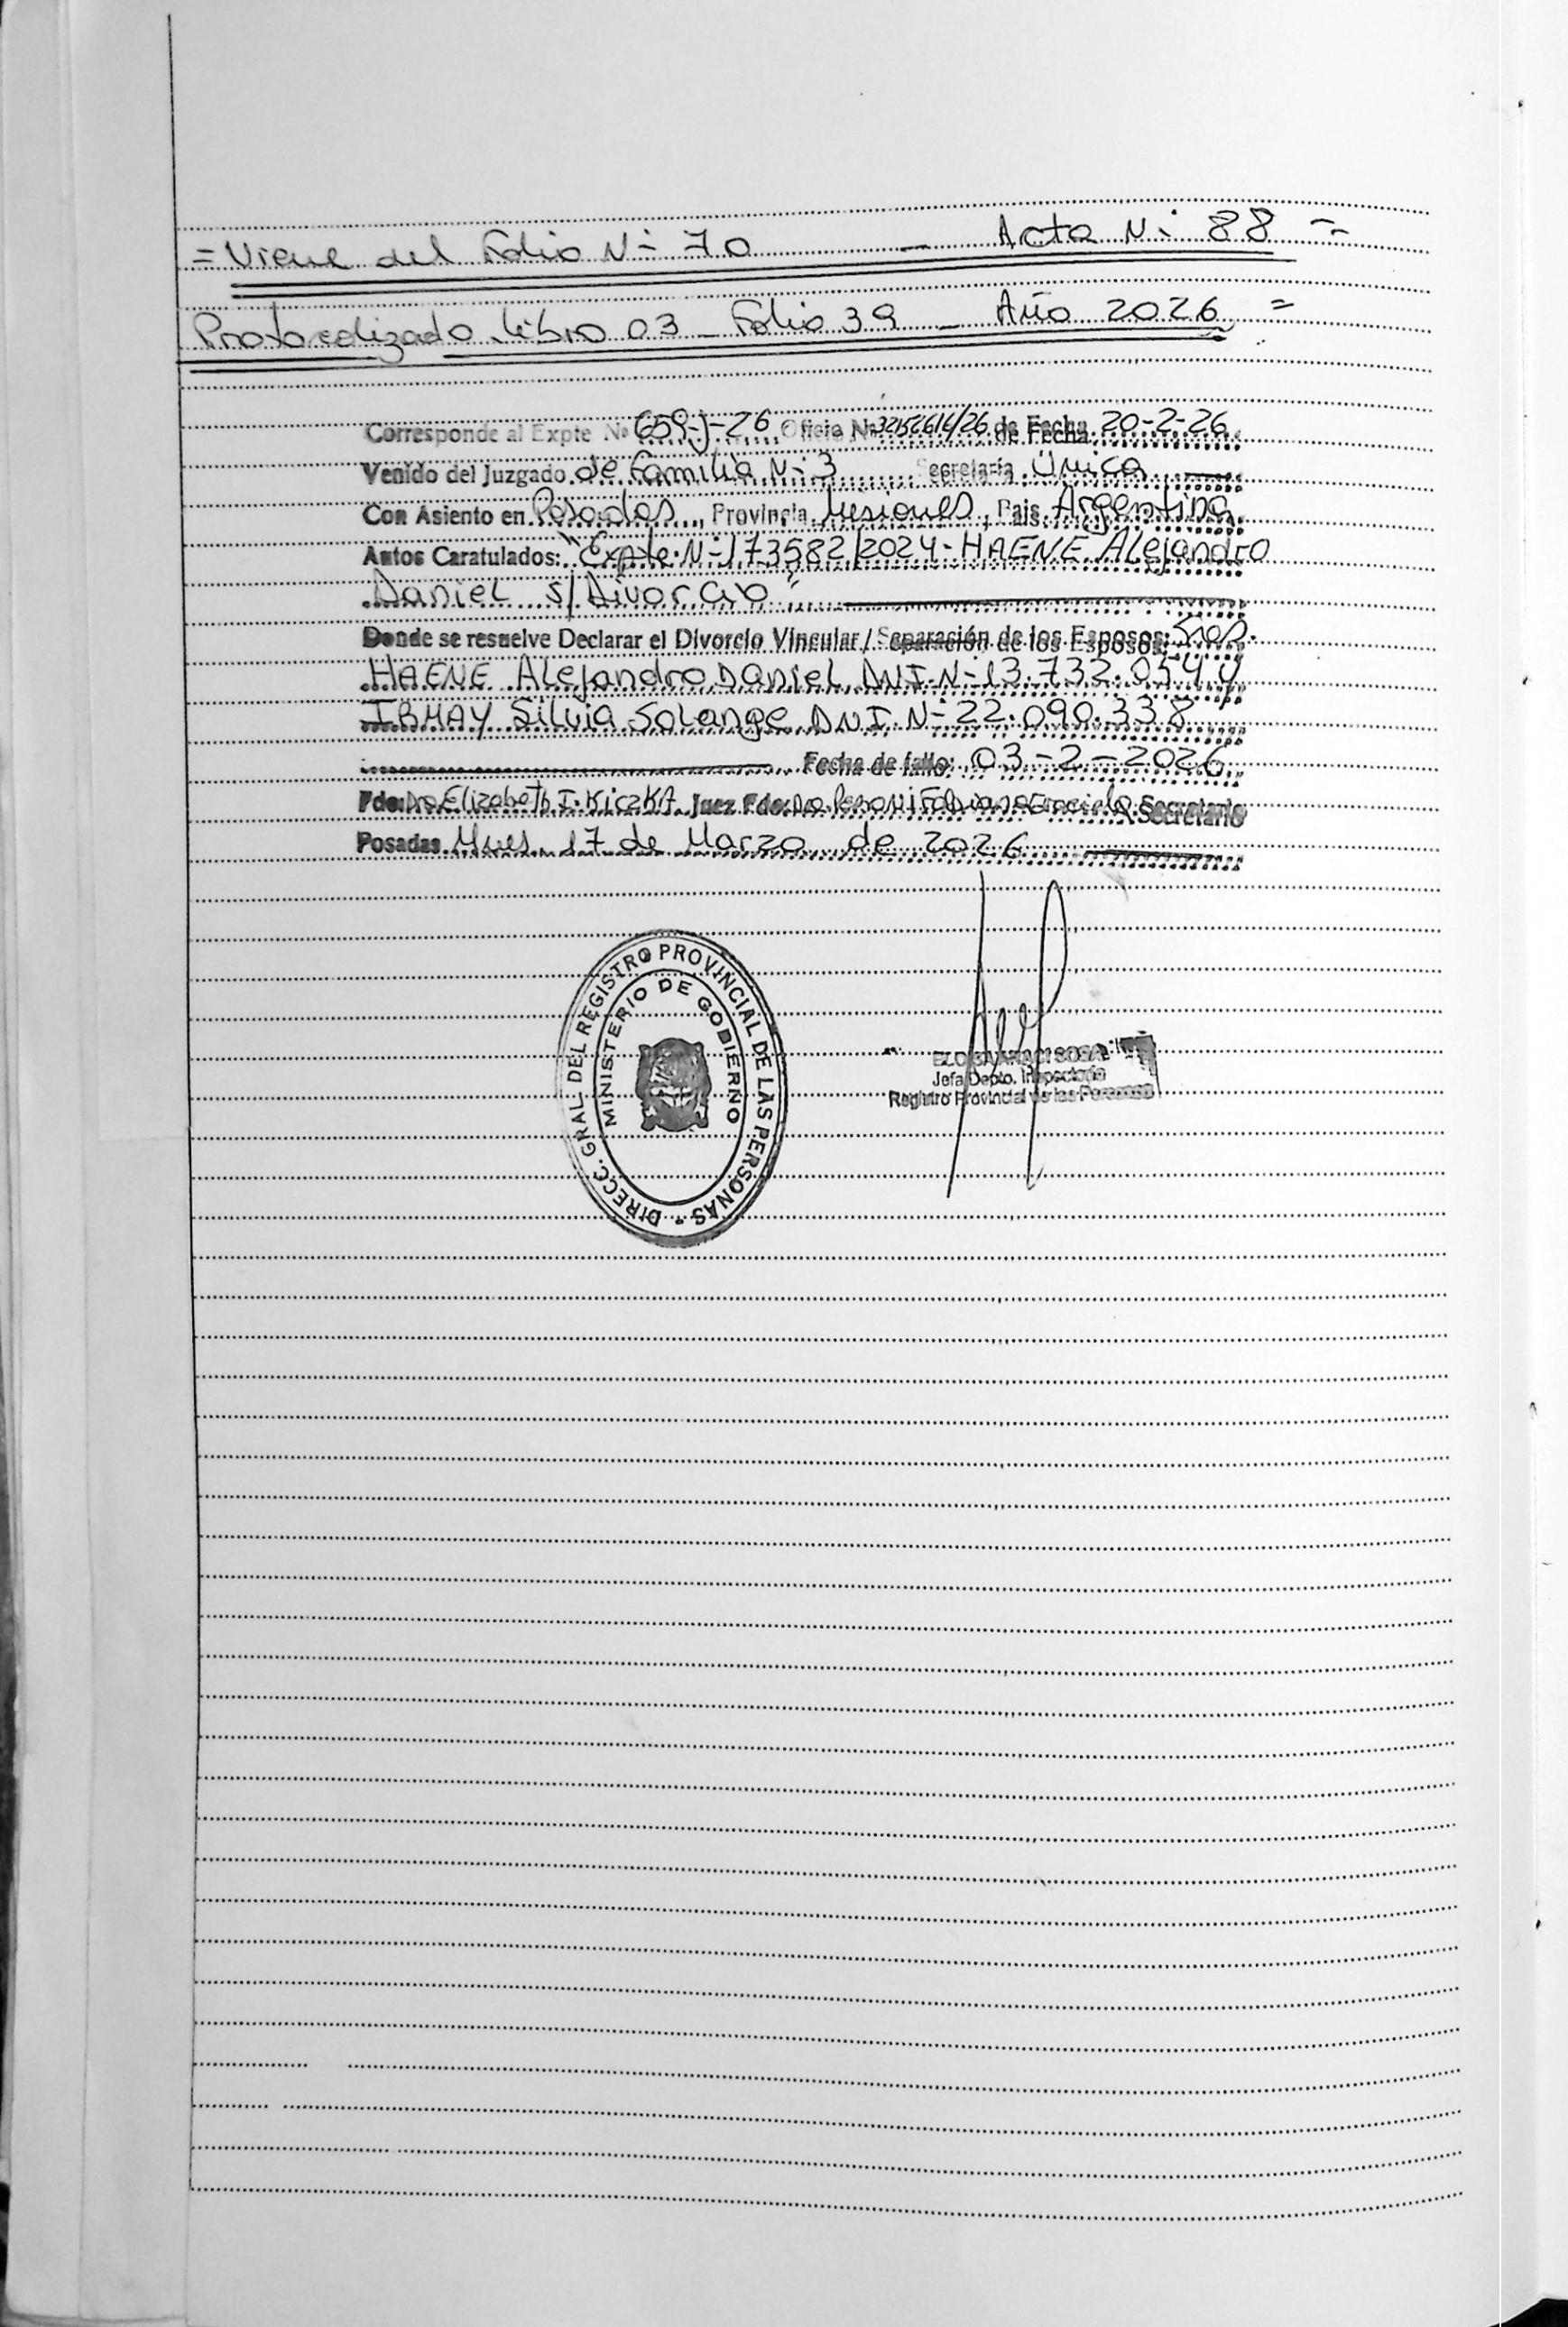 = Viene del Folio N° 70 - Acta N° 88 =
Protocolizado Libro 03 - Folio 39 - Año 2026 =
Corresponde al Expte Nº 659-J-26 Oficio Nº de Fecha 20-2-26
Venido del Juzgado de Familia N° 3 Secretaría Única
Con Asiento en Posadas, Provincia Misiones, Pais Argentina
Autos Caratulados: "Expte. N° 173582/2024 - HAENE Alejandro
Daniel s/ Divorcio"
Donde se resuelve Declarar el Divorcio Vincular / Separación de los Esposos: Sres.
HAENE Alejandro Daniel DNI. N° 13.732.054 y
IRMAY Silvia Solange DNI. N° 22.090.338
Fecha de fallo: 03-2-2026
Fdo: Dra Elizabeth I. KiczKA Juez Fdo: Dra Graciela Secretario
Posadas Mnes, 17 de Marzo de 2026
DIRECC. GRAL. DEL REGISTRO PROVINCIAL DE LAS PERSONAS -
MINISTERIO DE GOBIERNO
SOSA
Jefa Depto. Inspectoria
Registro Provincial de las Personas